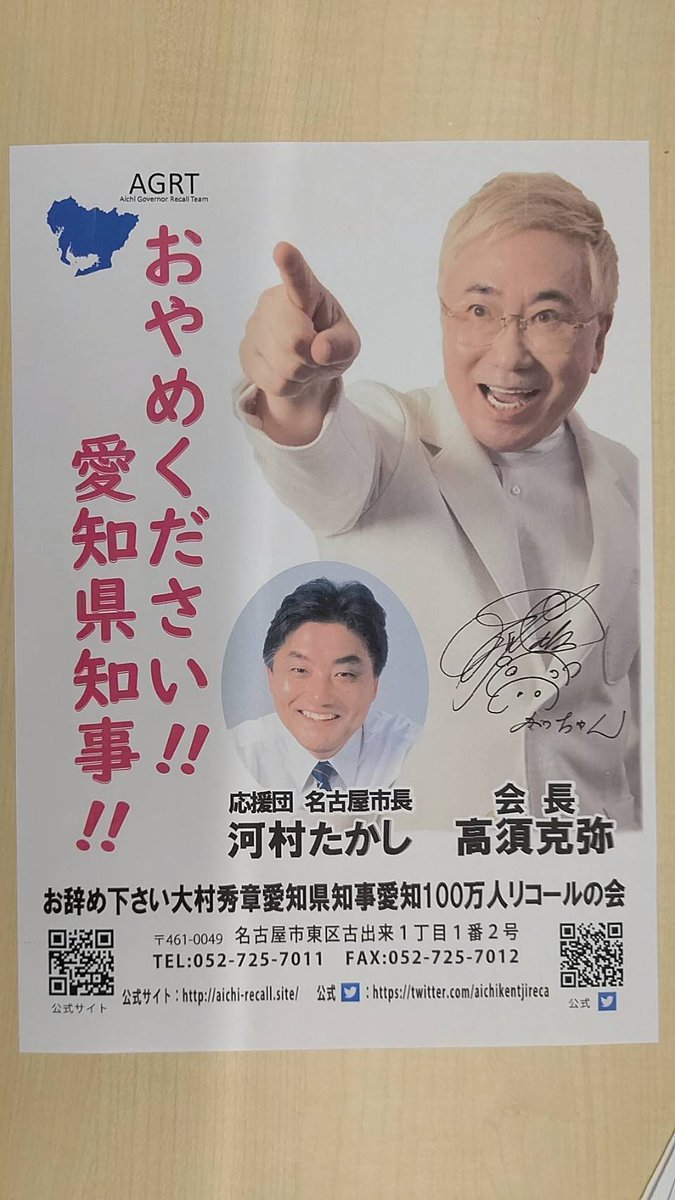 AGRT
Aichi Governor Recall Team
おやめください!!
愛知県知事!!
かっちゃん
応援団 名古屋市長
河村たかし
会長
高須克弥
お辞め下さい大村秀章愛知県知事愛知100万人リコールの会
〒461-0049 名古屋市東区古出来1丁目1番2号
TEL:052-725-7011 FAX:052-725-7012
公式サイト:http://aichi-recall.site/ 公式:https://twitter.com/aichikentjireca
公式サイト
公式